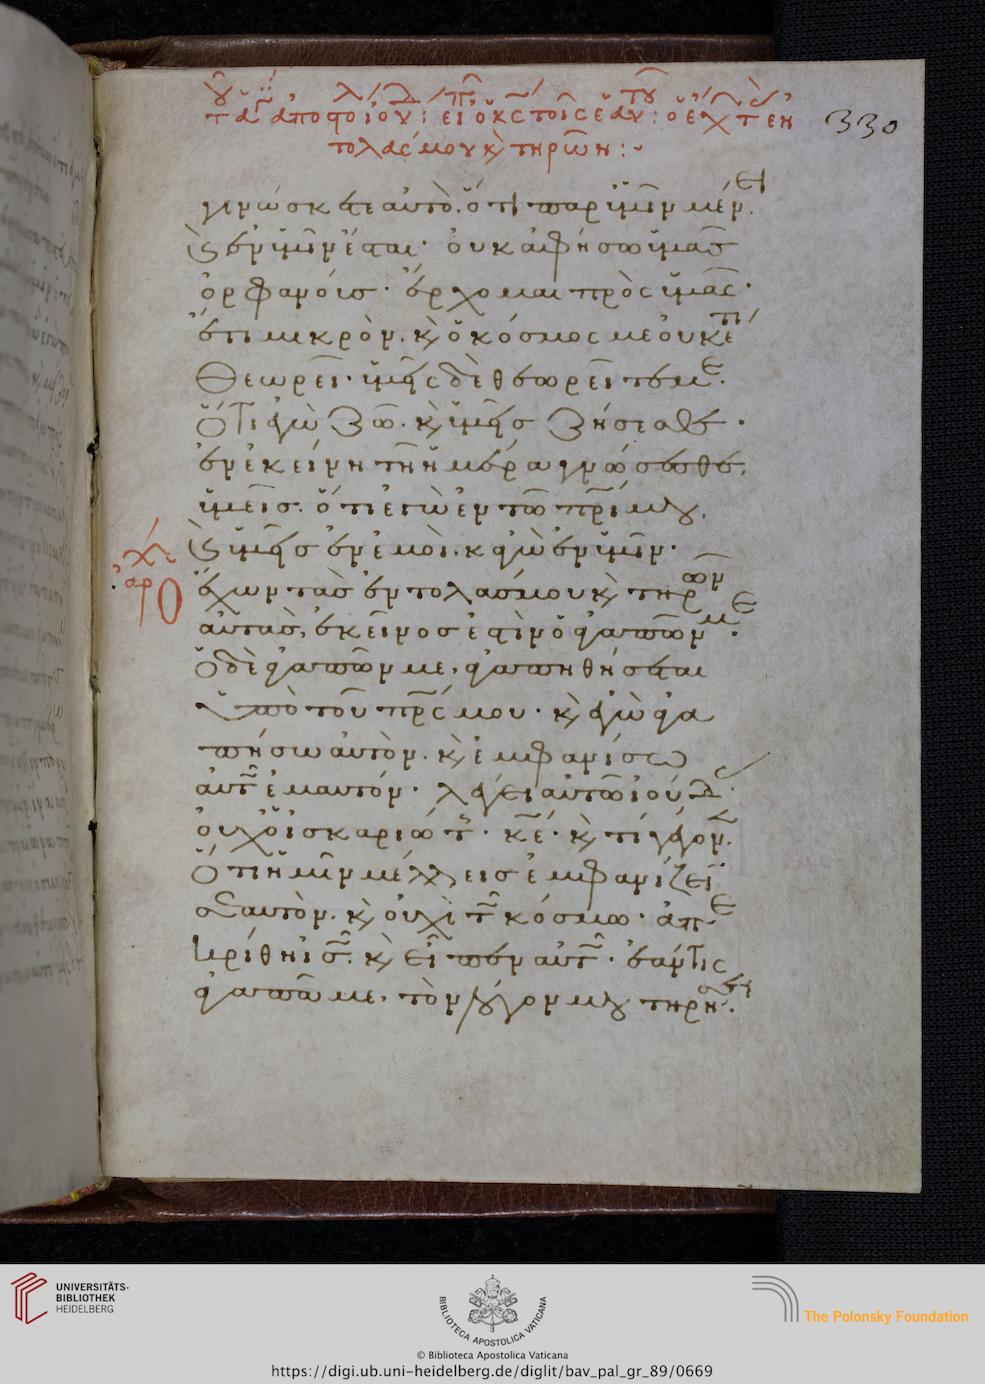 330
τολας μου κ τηρῶν :
γινώσκετε αὐτό. ὅτι παρ ὑμῖν μένει.
κ ἐν ὑμῖν ἔσται. οὐκ ἀφήσω ὑμᾶς
ὀρφανούς. ἔρχομαι πρὸς ὑμᾶς.
ἔτι μικρὸν. κ ὁ κόσμος με οὐκέτι
θεωρεῖ. ὑμεῖς δὲ θεωρεῖτε με.
ὅτι ἐγὼ ζῶ. κ ὑμεῖς ζήσεσθε.
ἐν ἐκείνη τῆ ἡμέρα γνώσεσθε
ὑμεῖς. ὅτι ἐγὼ ἐν τῶ πρι μου.
κ ὑμεῖς ἐν ἐμοὶ. κἀγὼ ἐν ὑμῖν.
αρ Ο ἔχων τὰς ἐντολάς μου κ τηρῶν
αὐτὰς, ἐκεῖνος ἐστὶν ὁ ἀγαπῶν με.
ὁ δὲ ἀγαπῶν με, ἀγαπηθήσεται
ὑπὸ τοῦ πρς μου. κ ἐγὼ ἀγα
πήσω αὐτὸν. κ ἐμφανίσω
αὐτῶ ἐμαυτόν. λέγει αὐτῶ ἰούδας.
οὐχ ὁ ἰσκαριώτης. κε. κ τί γέγονεν.
ὅτι ἡμῖν μέλλεις ἐμφανίζειν
σεαυτὸν. κ οὐχὶ τῶ κόσμω. ἀπε
κρίθη ὁ ις. κ εἶπεν αὐτῶ. ἐάν τις
ἀγαπᾶ με, τὸν λόγον μου τηρήσει.
UNIVERSITÄTS-
BIBLIOTHEK
HEIDELBERG
BIBLIOTECA APOSTOLICA VATICANA
The Polonsky Foundation
© Biblioteca Apostolica Vaticana
https://digi.ub.uni-heidelberg.de/diglit/bav_pal_gr_89/0669